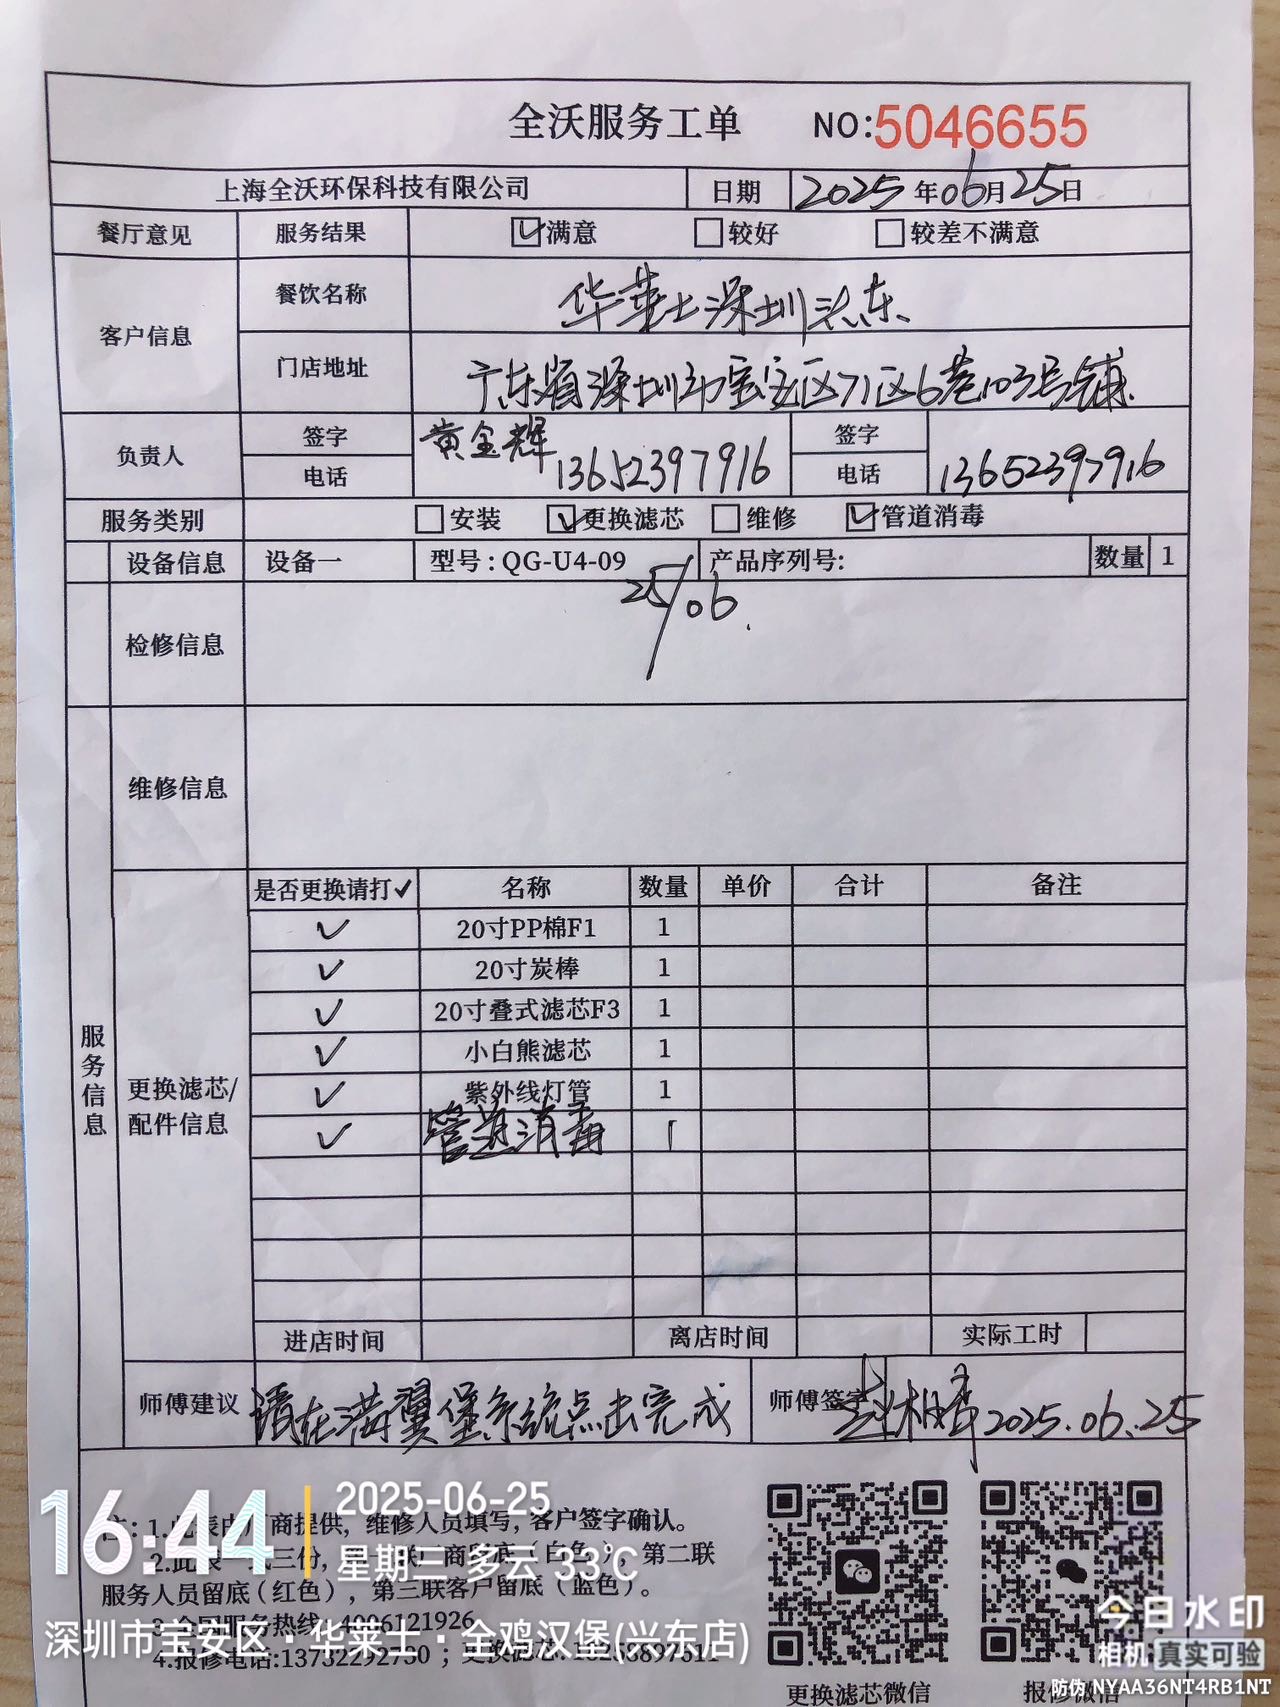 全沃服务工单 NO:5046655
上海全沃环保科技有限公司 日期 2025年06月25日
餐厅意见 服务结果 满意 较好 较差不满意
客户信息 餐饮名称 华莱士深圳兴东
门店地址 广东省深圳市宝安区71区6巷103号铺
负责人 签字 黄金辉 签字
电话 13652397916 电话 13652397916
服务类别 安装 更换滤芯 维修 管道消毒
设备信息 设备一 型号:QG-U4-09 产品序列号: 数量 1
25/06.
检修信息
维修信息
服务信息
更换滤芯/
配件信息
是否更换请打✓ 名称 数量 单价 合计 备注
✓ 20寸PP棉F1 1
✓ 20寸炭棒 1
✓ 20寸叠式滤芯F3 1
✓ 小白熊滤芯 1
✓ 紫外线灯管 1
✓ 管道消毒 1
进店时间 离店时间 实际工时
师傅建议 请在满翼堡系统点击完成 师傅签字 2025.06.25
注: 1.此表由厂商提供, 维修人员填写, 客户签字确认。
2.此表一式三份, 第一联厂商留底(白色), 第二联
服务人员留底(红色), 第三联客户留底(蓝色)。
3.全国服务热线:4006121926
4.报修电话:13732292750 ; 更换滤芯:
更换滤芯微信 报修微信
16:44
2025-06-25
星期三 多云 33℃
深圳市宝安区·华莱士·全鸡汉堡(兴东店)
今日水印
相机 真实可验
防伪 NYAA36NT4RB1NT